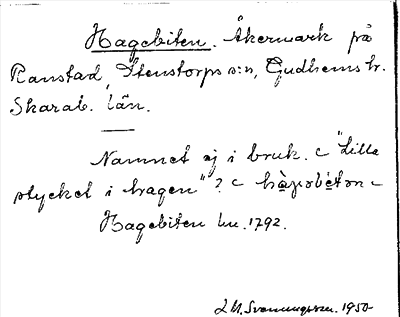 Hagebiten. Åkermark på
Ranstad, Stenstorps s:n, Gudhems hr.
Skarab. län.
Namnet ej i bruk. c "Lilla
stycket i hagen"? c
Hagebiten hn. 1792.
L. M. Svenungsson. 1950